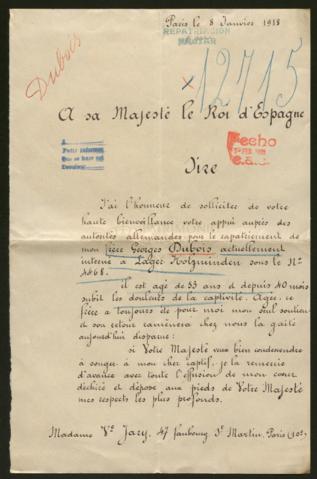 Paris le 8 Janvier 1918
REPATRIACION
MILITAR
Dubois
× 12715
A sa Majesté le Roi d'Espagne
Fecho
Sire
J'ai l'honneur de solliciter de votre
haute bienveillance votre appui auprès des
autorités allemandes pour le rapatriement de
mon frère Georges Dubois actuellement
interné à Lager Holzminden sous le N°
4468.
il est âgé de 53 ans et depuis 40 mois
subit les douleurs de la captivité. Agée, ce
frère a toujours été pour moi mon seul soutien
et son retour ramènera chez nous la gaité
aujourd'hui disparue:
si Votre Majesté veut bien condescendre
à songer à mon cher captif, je la remercie
d'avance avec toute l'effusion de mon cœur
déchiré et dépose aux pieds de Votre Majesté
mes respects les plus profonds.
Madame Vᵉ Jary, 47 faubourg Sᵗ Martin, Paris (10ᵉ).